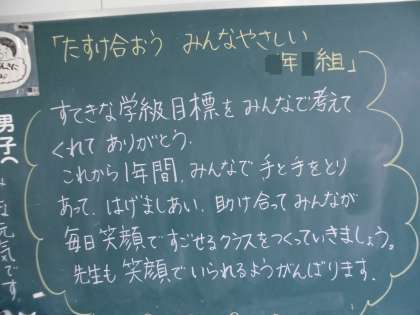 「たすけ合おう みんなやさしい
年 組」
すてきな学級目標をみんなで考えて
くれてありがとう.
これから1年間.みんなで手と手をとり
あって.はげましあい.助け合ってみんなが
毎日笑顔ですごせるクラスをつくっていきましょう。
先生も笑顔でいられるようがんばります.
男子へ
元気です